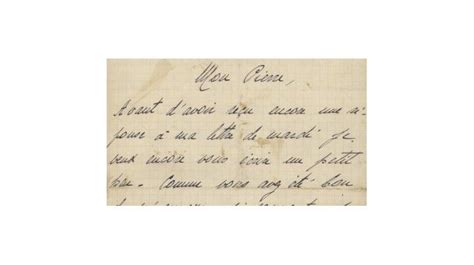 Mon Pierre,
Avant d'avoir reçu encore une ré-
ponse à ma lettre de mardi je
veux encore vous écrire un petit
peu. Comme vous avez été bon